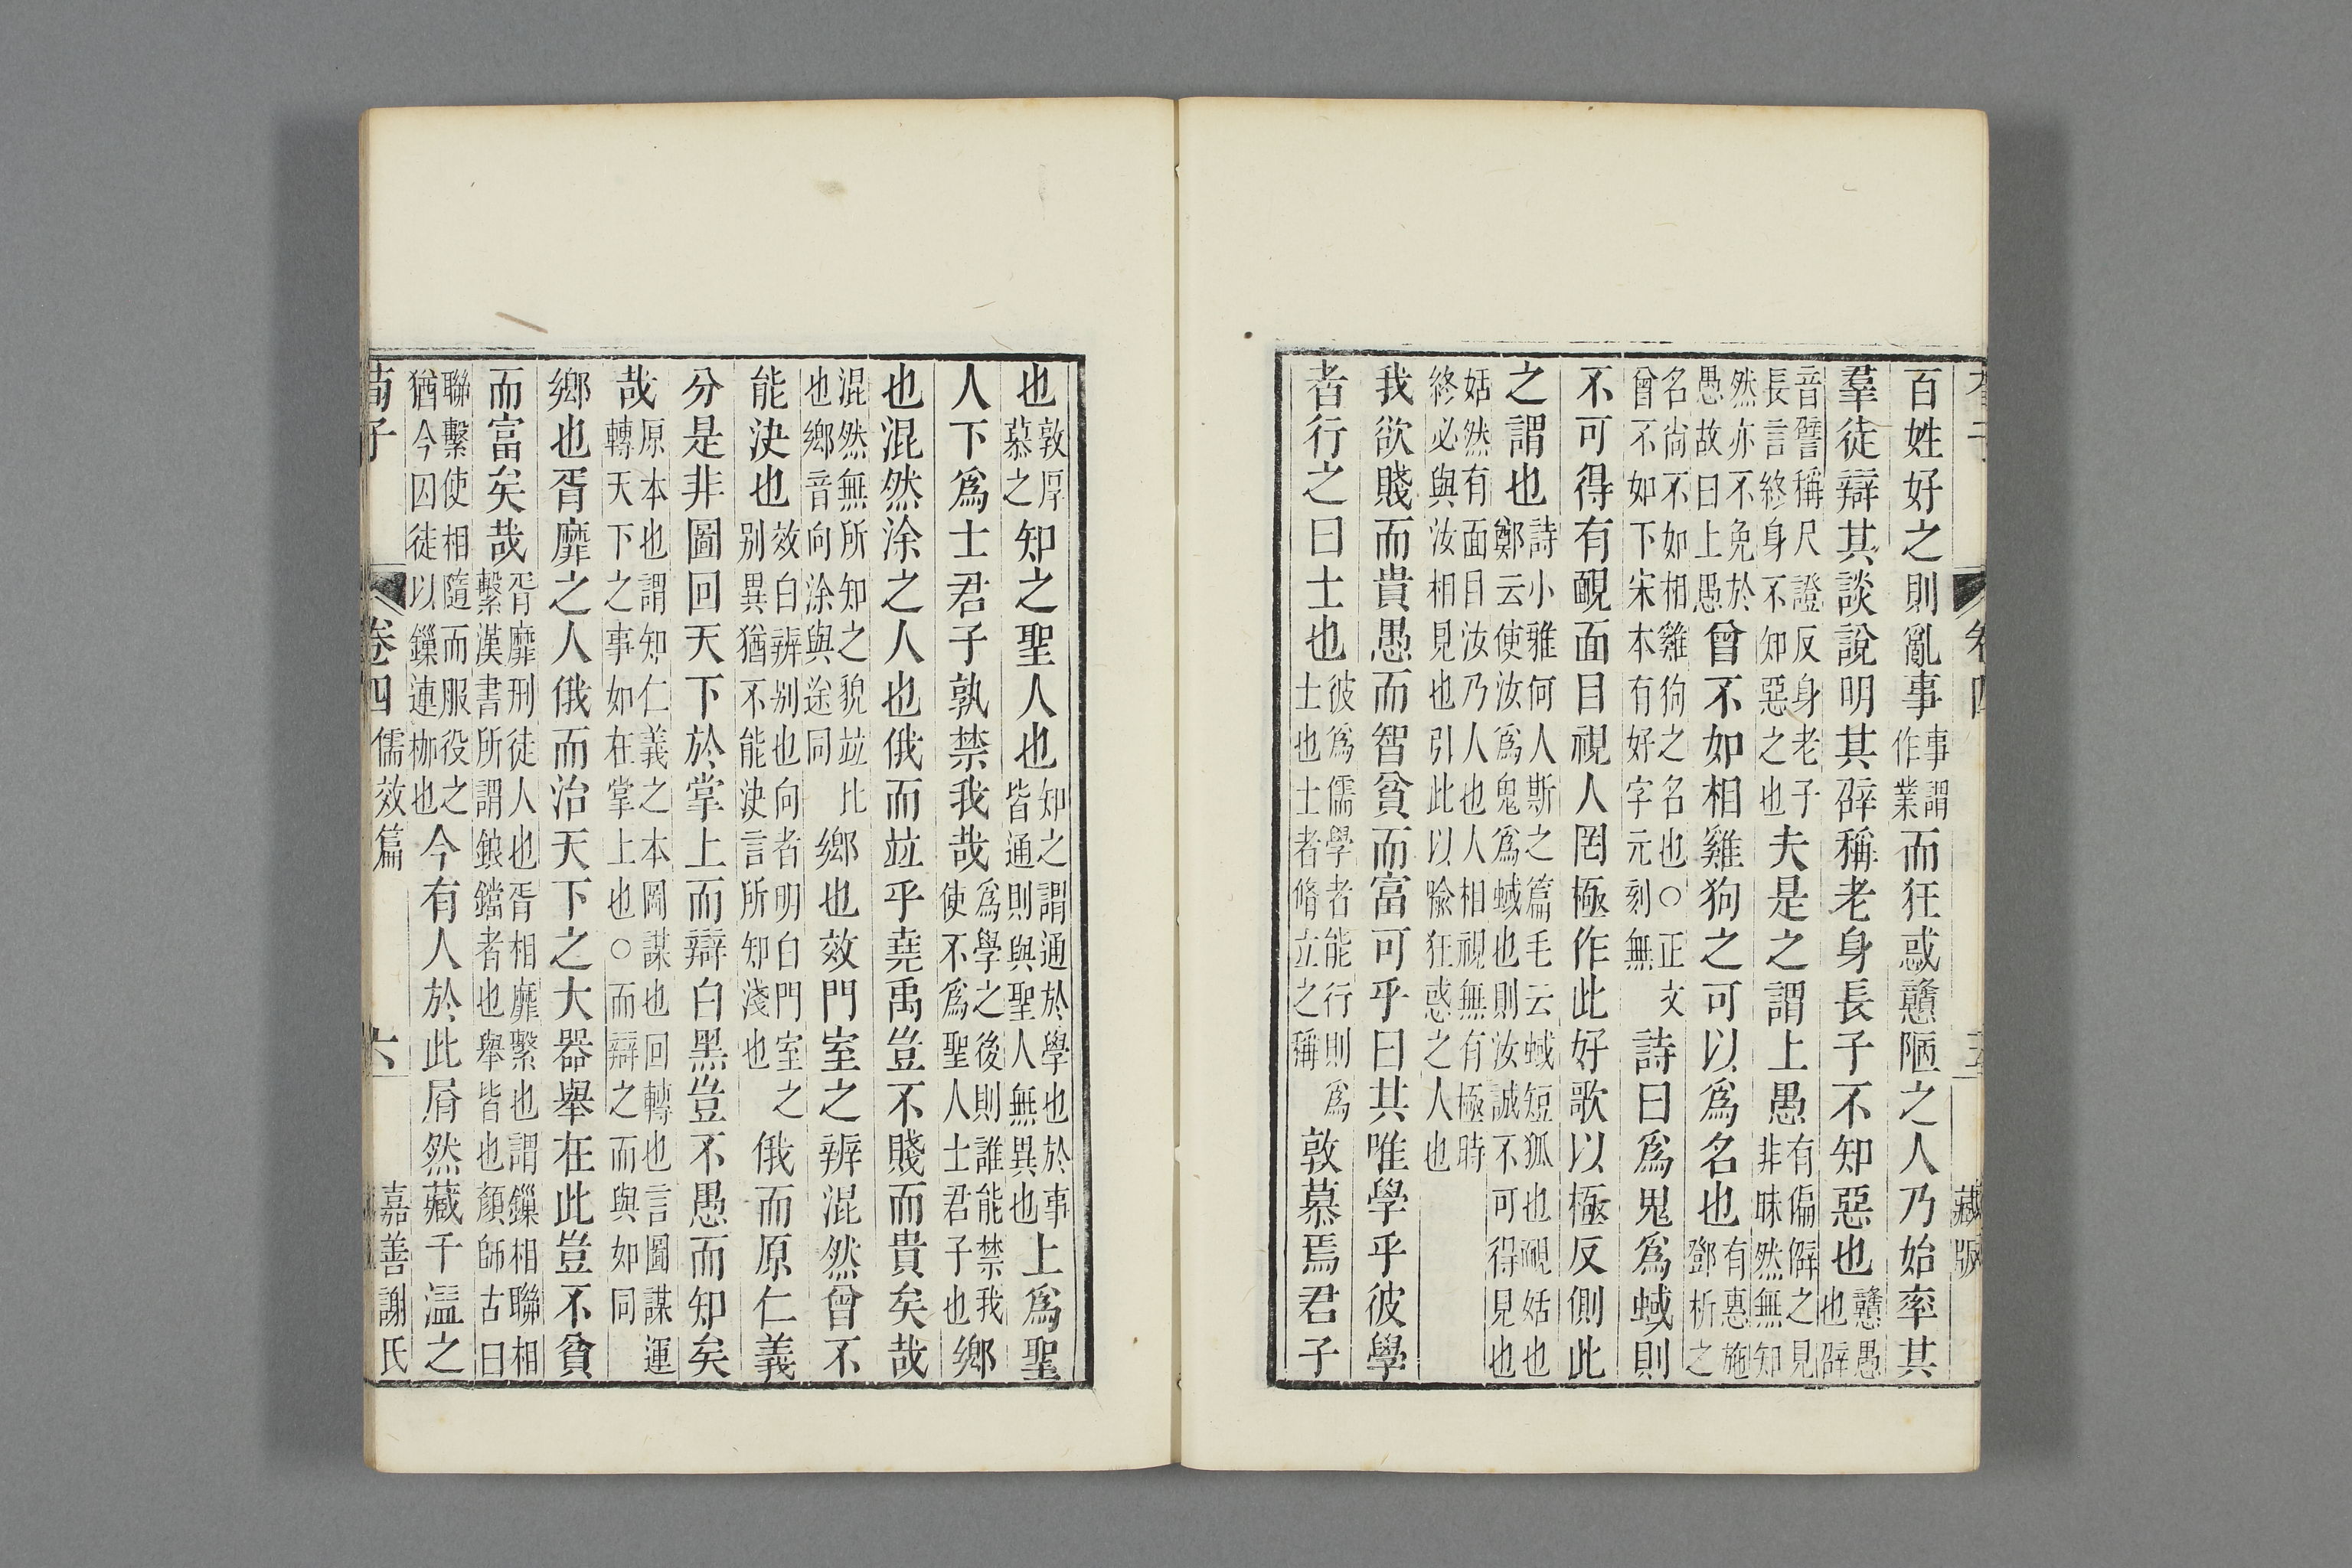 百姓好之則亂事事謂作業而狂惑戇陋之人乃始率其
羣徒辯其談說明其辟稱老身長子不知惡也戇愚也辟
音譬稱尺證反身老子長言終身不知惡之也夫是之謂上愚有偏僻之見非昧然無知
然亦不免於愚故曰上愚曾不如相雞狗之可以爲名也有惠施鄧析之
名尚不如相雞狗之名也○正文曾不如下宋本有好字元刻無詩曰爲鬼爲蜮則
不可得有靦面目視人罔極作此好歌以極反側此
之謂也詩小雅何人斯之篇毛云蜮短狐也靦姡也鄭云使汝爲鬼爲蜮也則汝誠不可得見也
姡然有面目汝乃人也人相視無有極時終必與汝相見也引此以喻狂惑之人也
我欲賤而貴愚而智貧而富可乎曰其唯學乎彼學
者行之曰士也彼爲儒學者能行則爲士也士者脩立之稱敦慕焉君子
也敦厚慕之知之聖人也知之謂通於學也於事皆通則與聖人無異也上爲聖
人下爲士君子孰禁我哉爲學之後則誰能禁我使不爲聖人士君子也鄉
也混然涂之人也俄而竝乎堯禹豈不賤而貴矣哉
混然無所知之貌竝比也鄉音向涂與途同鄉也效門室之辨混然曾不
能決也效白辨別也向者明白門室之別異猶不能決言所知淺也俄而原仁義
分是非圖回天下於掌上而辯白黑豈不愚而知矣
哉原本也謂知仁義之本圖謀也回轉也言圖謀運轉天下之事如在掌上也○而辯之而與如同
鄉也胥靡之人俄而治天下之大器舉在此豈不貧
而富矣哉胥靡刑徒人也胥相靡繫也謂鏁相聯相繫漢書所謂鋃鐺者也舉皆也顏師古曰
聯繫使相隨而服役之猶今囚徒以鏁連枷也今有人於此屑然藏千溢之
荀子
卷四儒效篇
六
嘉善謝氏
藏版